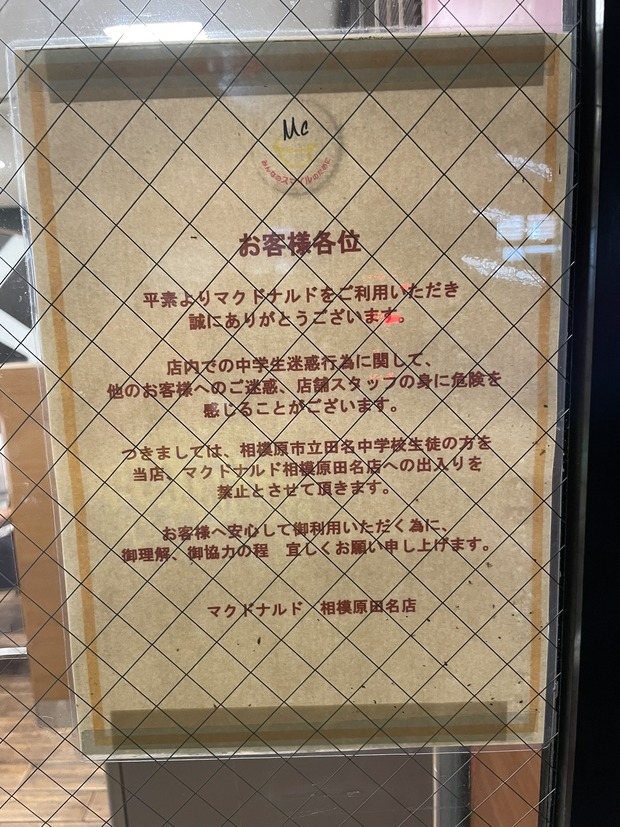 Mc
みんなのスマイルのために
お客様各位
平素よりマクドナルドをご利用いただき
誠にありがとうございます。
店内での中学生迷惑行為に関して、
他のお客様へのご迷惑、店舗スタッフの身に危険を
感じることがございます。
つきましては、相模原市立田名中学校生徒の方を
当店、マクドナルド相模原田名店への出入りを
禁止とさせて頂きます。
お客様へ安心して御利用いただく為に、
御理解、御協力の程　宜しくお願い申し上げます。
マクドナルド　相模原田名店